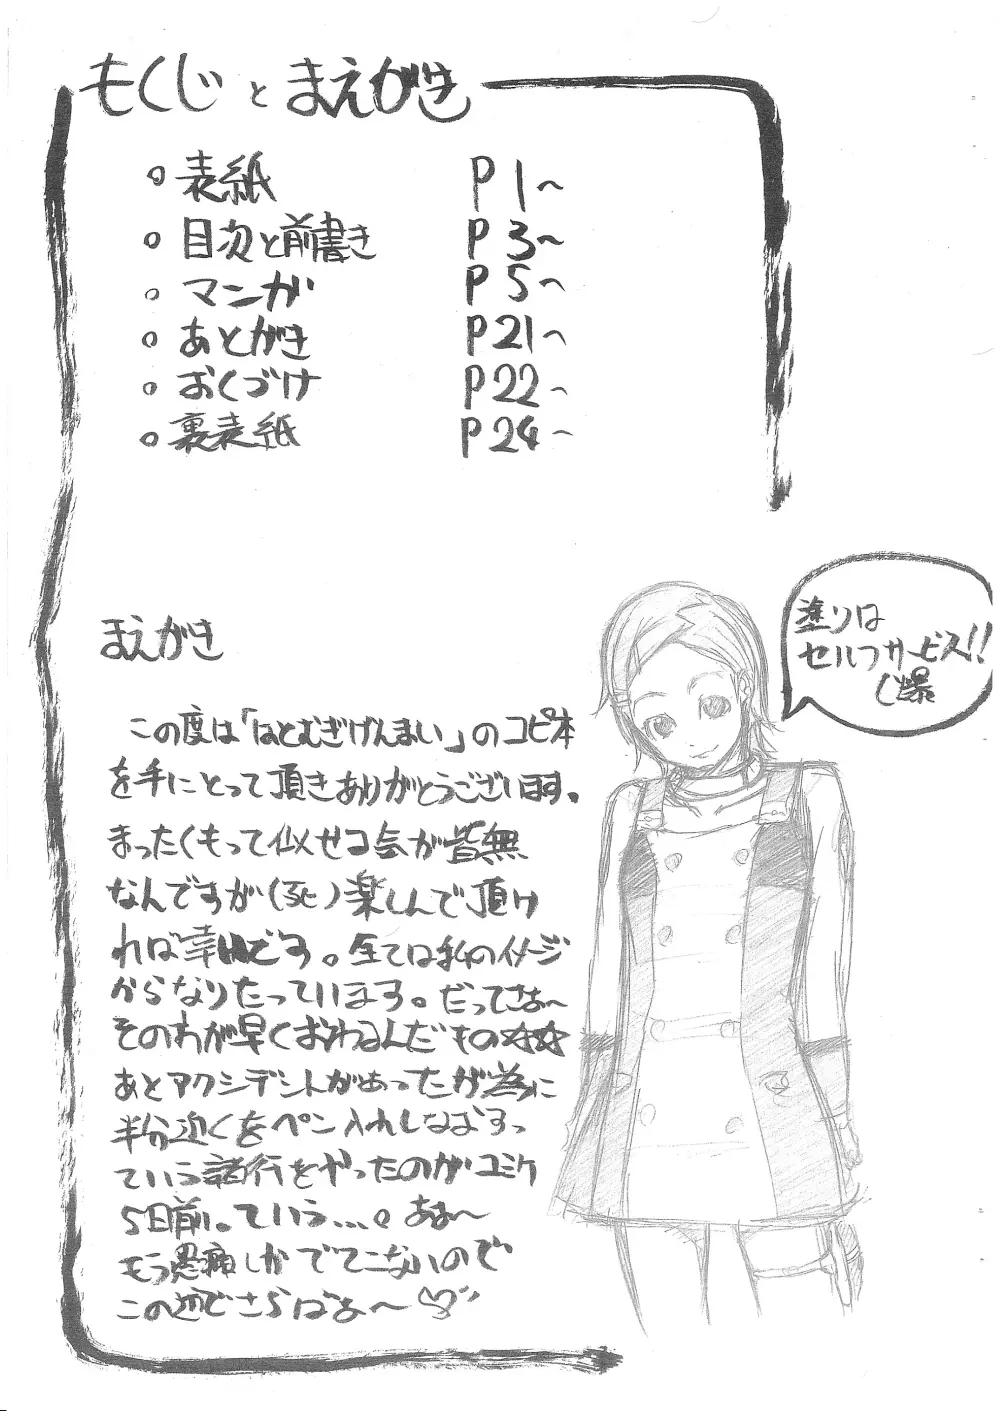 もくじ と まえがき
○ 表紙 P1～
○ 目次と前書き P3～
○ マンガ P5～
○ あとがき P21～
○ おくづけ P22～
○ 裏表紙 P24～
塗りは
セルフサービス!!
(爆
まえがき
この度は「はとむぎげんまい」のコピ本
を手にとって頂きありがとうございます。
まったくもって似せ
なんですが(死)楽しんで頂け
れば幸いです。全ては私のイメージ
からなりたっています。だってさぁ～
そのわが早くおわるんだもの☆☆
あとアクシデントがあったが為に
半分近くをペン入れしなおすっ
ていう諸行をやったのがコミケ
5日前っていう…。あぁ～
もう愚痴しかでてこないので
この辺でさらばぁ～